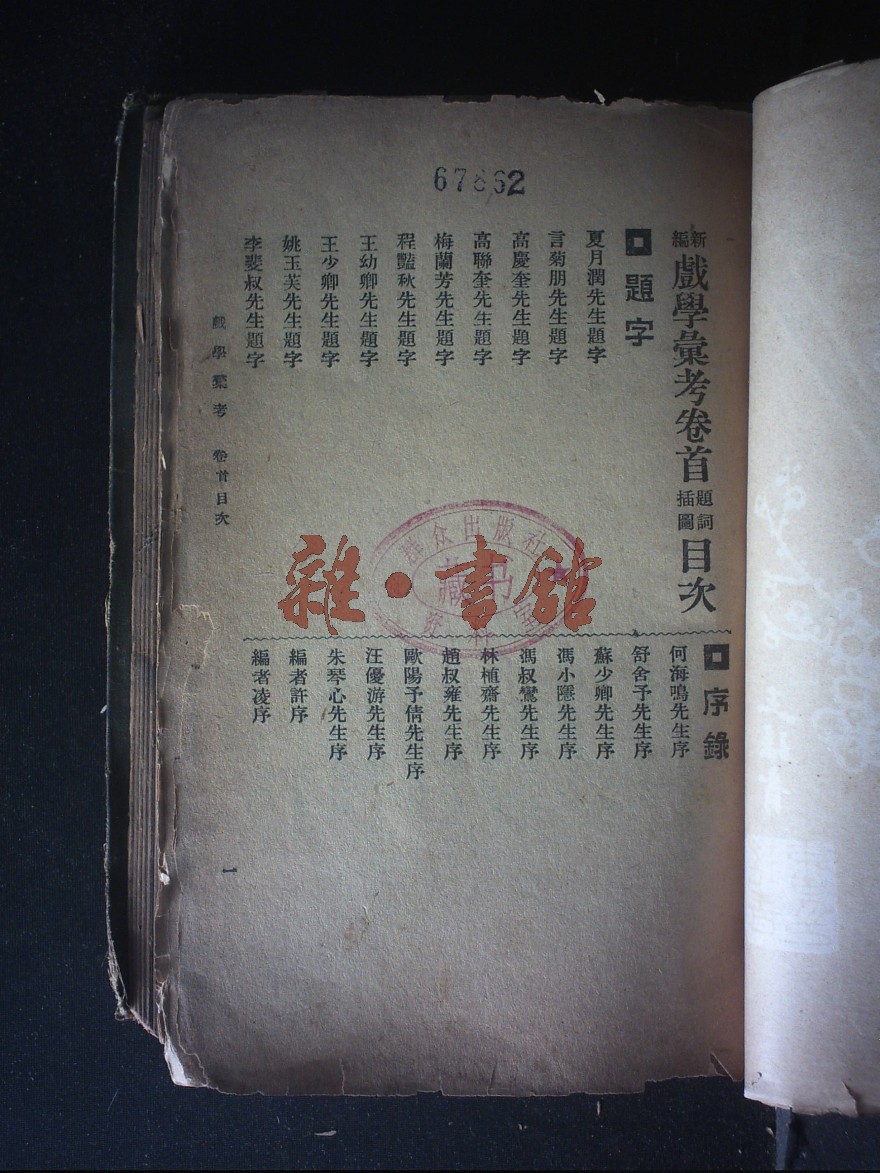 67862
新編戲學彙考卷首題詞插圖目次
題字
夏月潤先生題字
言菊朋先生題字
高慶奎先生題字
高聯奎先生題字
梅蘭芳先生題字
程豔秋先生題字
王幼卿先生題字
王少卿先生題字
姚玉芙先生題字
李斐叔先生題字
序錄
何海鳴先生序
舒舍予先生序
蘇少卿先生序
馮小隱先生序
馮叔鸞先生序
林植齋先生序
趙叔雍先生序
歐陽予倩先生序
汪優游先生序
朱琴心先生序
編者許序
編者凌序
戲學彙考 卷首目次
一
群众出版社
雜·書館